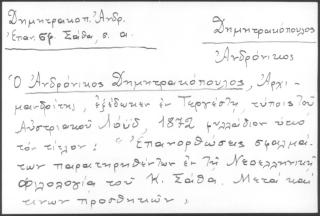 Δημητρακοπ. Ἀνδρ.
Ἐπαν. σφ. Σάθα, ε. α.
Δημητρακόπουλος
Ἀνδρόνικος
Ὁ Ἀνδρόνικος Δημητρακόπουλος, Ἀρχι-
μανδρίτης, ἐξέδωκεν ἐν Τεργέστῃ, τύποις τοῦ
Αὐστριακοῦ Λόϋδ, 1872 φυλλάδιον ὑπὸ
τὸν τίτλον: "Ἐπανορθώσεις σφαλμά-
των παρατηρηθέντων ἐν τῇ Νεοελληνικῇ
Φιλολογίᾳ τοῦ Κ. Σάθα. Μετὰ καί
τινων προσθηκῶν,,